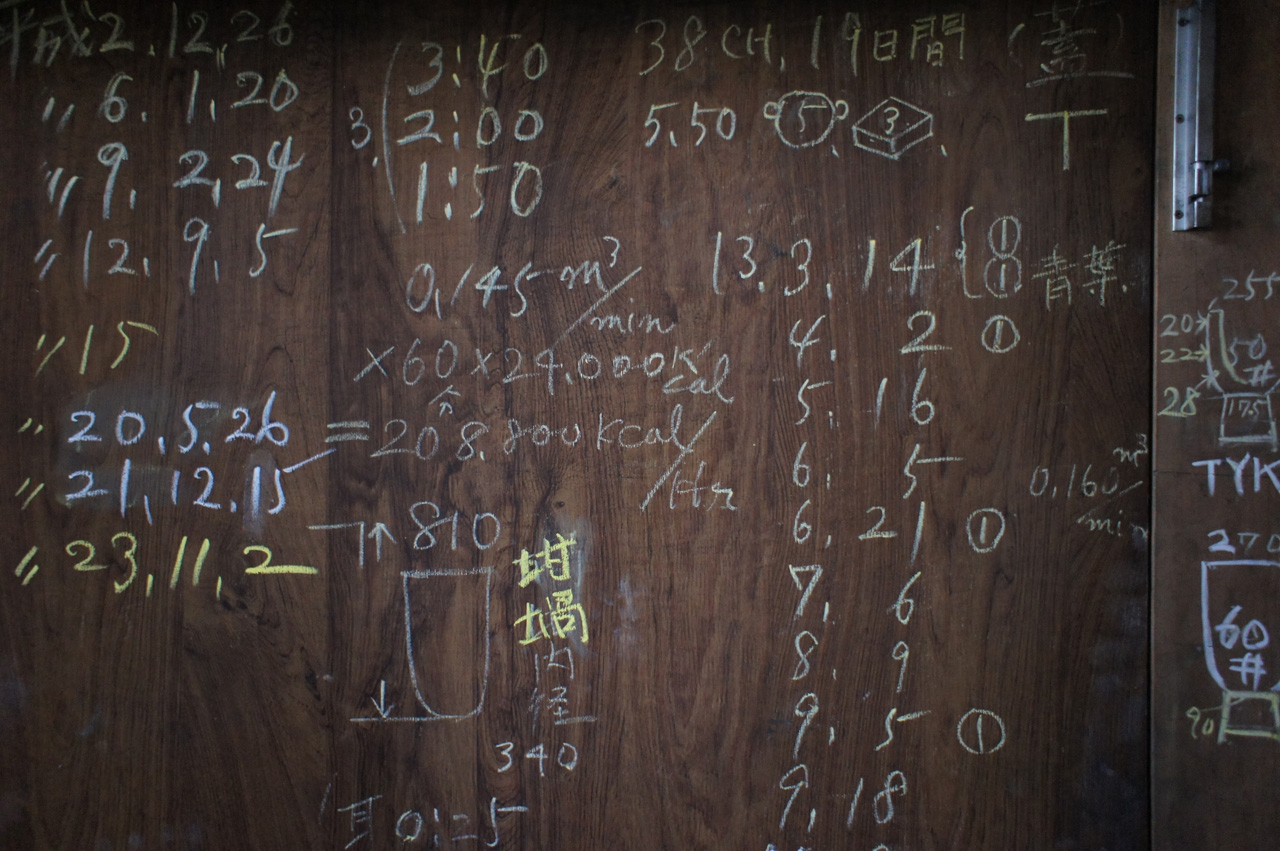 平成2.12.26
〃 6. 1.20
〃 9. 2,24
〃 12. 9. 5
〃 15
〃 20.5.26
〃 21,12.15
〃 23,11,2
3:40
3. 2:00
1:50
0,145 m³/min
×60×24,000Kcal
=208,800Kcal/Hr
810
坩堝
内径
340
耳 0:25
38CH, 19日間 (蓋)
5,50 ⑤ 3 T
13.3,14 ① ① 青葉.
4. 2 ①
5. 16
6. 5
6. 21 ①
7, 6
8. 9
9, 5 ①
9, 18
0.160 m³/min
255
20
22
50#
28
175
TYK
270
60#
90